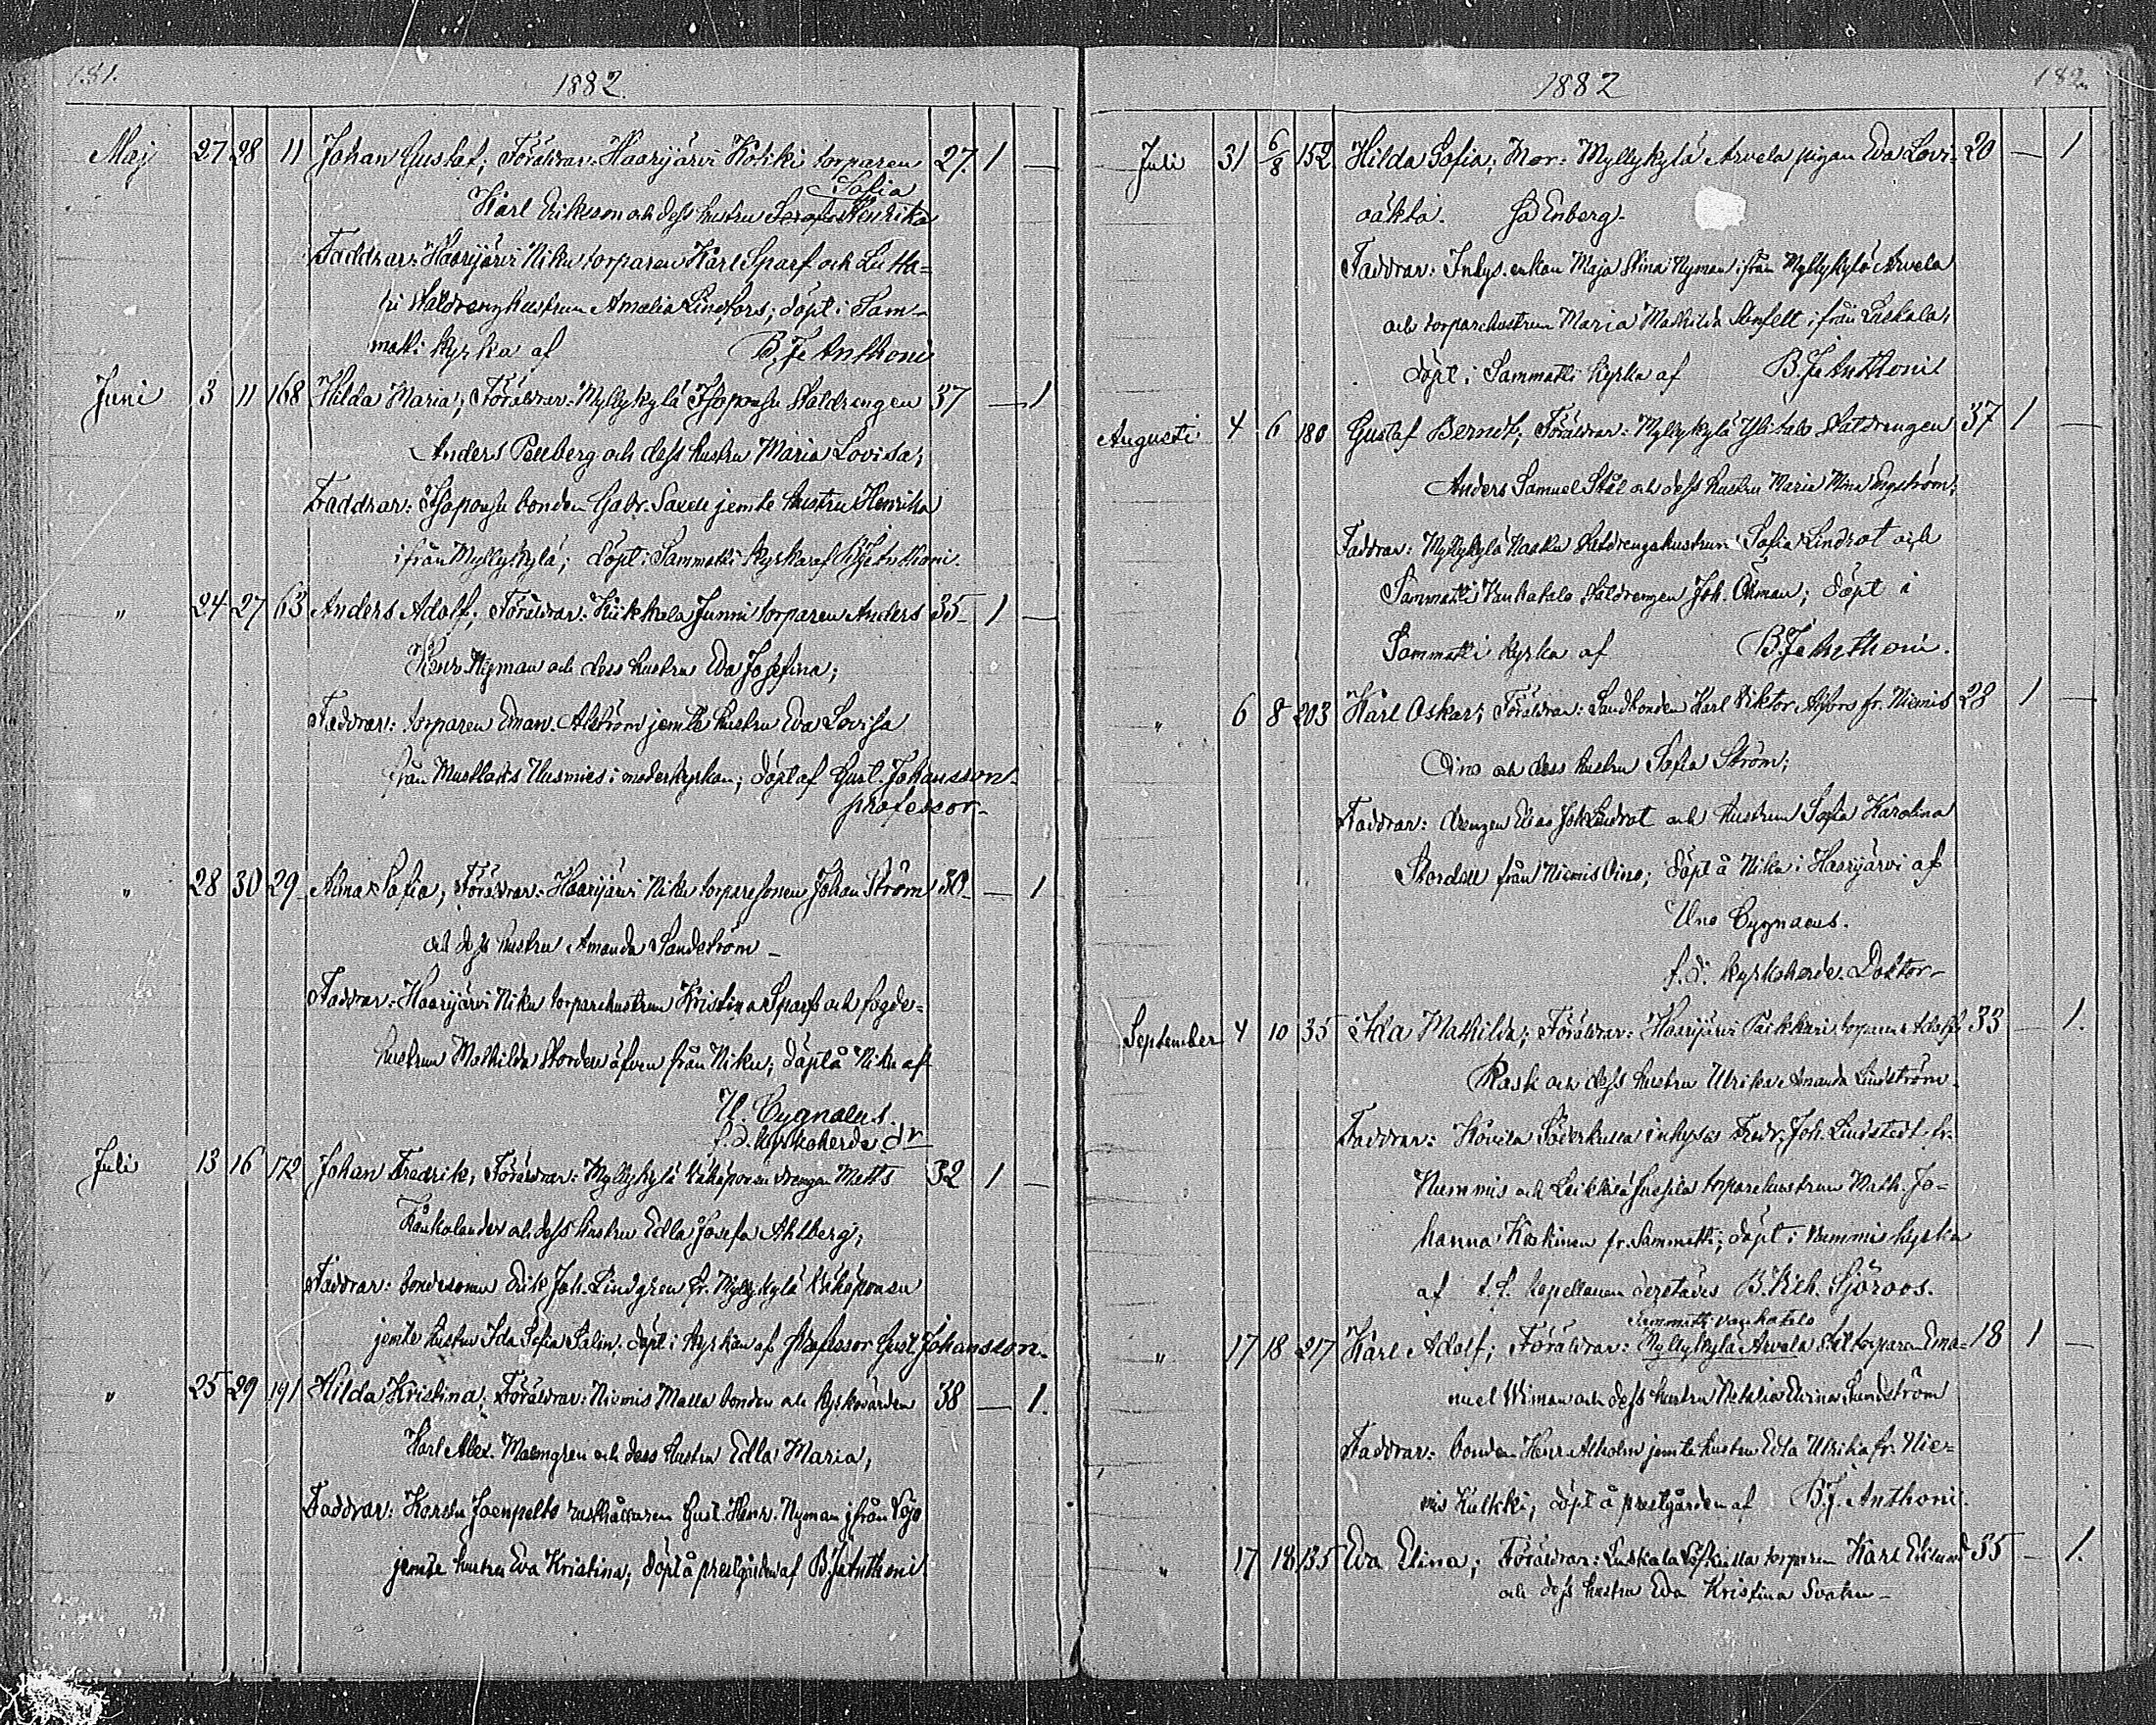 181.
1882.
Maij 27 28 11 Johan Gustaf; Föräldrar: Haarijärvi Kotiki torparen 27. 1 —
Sofia
Karl Eriksson och dess hustru Serafia Henrika
Faddrar: Haarijärvi Niku torparen Karl Sparf och
Statdrenghustrun Amalia Lindfors; döpt i Sam-
matti kyrka af B. F. Anthoni
Juni 3 11 168 Hilda Maria; Föräldrar: Myllykylä Isoponsu Statdrengen 37 — 1
Anders Palleberg och dess hustru Maria Lovisa;
Faddrar: Isoponsu bonden Gabr. jemte hustru Henrika
ifrån Myllykylä; döpt i Sammatti kyrka af B. F. Anthoni.
" 24 27 63 Anders Adolf; Föräldrar: Kiikkala Junni torparen Anders 35 1 —
Henr. Nyman och dess hustru Eva Josefina;
Faddrar: torparen Eman. Alström jemte hustru Eva Lovisa
från Mustlahs Uusmies i moderkyrkan; döpt af Gust. Johansson.
professor-
" 28 30 29 Alma Sofia; Föräldrar: Haarijärvi Niku torparesonen Johan Ström 30 — 1
och dess hustru Amanda Sandström -
Faddrar: Haarijärvi Niku torparehustrun Kristina Sparf och fogde-
hustrun Mathilda Nordeu äfven från Niku; döpt å Niku af
U. Cygnaeus.
f. d. kyrkoherde dr
Juli 13 16 172 Johan Fredrik; Föräldrar: Myllykylä Vähäponsu drengen Matts 32 1 —
och dess hustru Edla Josefa Ahlberg;
Faddrar: bondesonen Erik Joh. Lindgren fr. Myllykylä Vähäponsu
jemte hustru Ida Sofia Salin; döpt i kyrkan af Professor Gust. Johansson.
" 25 29 191 Hilda Kristina; Föräldrar: Niemis Malla bonden och kyrkovärden 38 — 1.
Karl Alex. Malmgren och dess hustru Edla Maria;
Faddrar: Karstu Jaenpelto rusthållaren Gust. Henr. Nyman ifrån Lojo
jemte hustru Eva Kristina; döpt å prestgården af B. F. Anthoni.
182.
1882
Juli 31 6/8 152. Hilda Sofia; Mor: Myllykylä Arvela pigan Eva Lovi- 20 — 1
oäkta. sa Enberg.
Faddrar: Inhys. enkan Maja Stina Nyman ifrån Myllykylä Arvela
och torparehustrun Maria Mathilda Stenfelt ifrån Luskala;
döpt i Sammatti kyrka af B. F. Anthoni
Augusti 4 6 180 Gustaf Berndt; Föräldrar: Myllykylä Ylitalo Statdrengen 37 1 —
Anders Samuel Stål och dess hustru Maria Wilma Engström;
Faddrar: Myllykylä Statdrengshustrun Sofia Lindrot och
Sammatti Vanhatalo Statdrengen Joh. Öhman; döpt i
Sammatti kyrka af B. F. Anthoni.
" 6 8 203 Karl Oskar; Föräldrar: Landbonden Karl Viktor Alfors fr. Niemis 28 1 —
Oino och dess hustru Sofia Ström;
Faddrar: drengen Elias Joh Lindrot och hustrun Sofia Karolina
Nordeu från Niemis Oino; döpt å Niku i Haarijärvi af
Uno Cygnaeus.
f. d. kyrkoherde. Doktor-
September 4 10 35 Ida Mathilda; Föräldrar: Haarijärvi Paikkari torparen Adolf 33 — 1.
Rask och dess hustru Ulrika Amanda Lindström.
Faddrar: Hövila Söderkulla inhyses Fredr. Joh. Lindstedt fr.
Nummis och Leikkilä torparehustrun Math. Jo-
hanna Koskinen fr. Sammatti; döpt i Nummis kyrka
af t. f. kapellanen derstädes B. Rich. Sjöroos.
Sammatti vanhatalo
" 17 18 217 Karl Adolf; Föräldrar: Myllykylä Arvela Stattorparen Ema- 18 1 —
nuel Wiman och dess hustru Natalia Evina Sundström
Faddrar: bonden Henr. Alholm jemte hustru Edla Ulrika fr. Nie-
mis Kulkki; döpt å prestgården af B. F. Anthoni.
" 17 18 135 Eva Elina; Föräldrar: Luskala Löfkulla torparen Karl Eklund 35 — 1.
och dess hustru Eva Kristina Svahn -